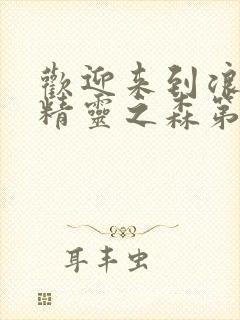 歡迎来到浪
精靈之森第
耳丰虫